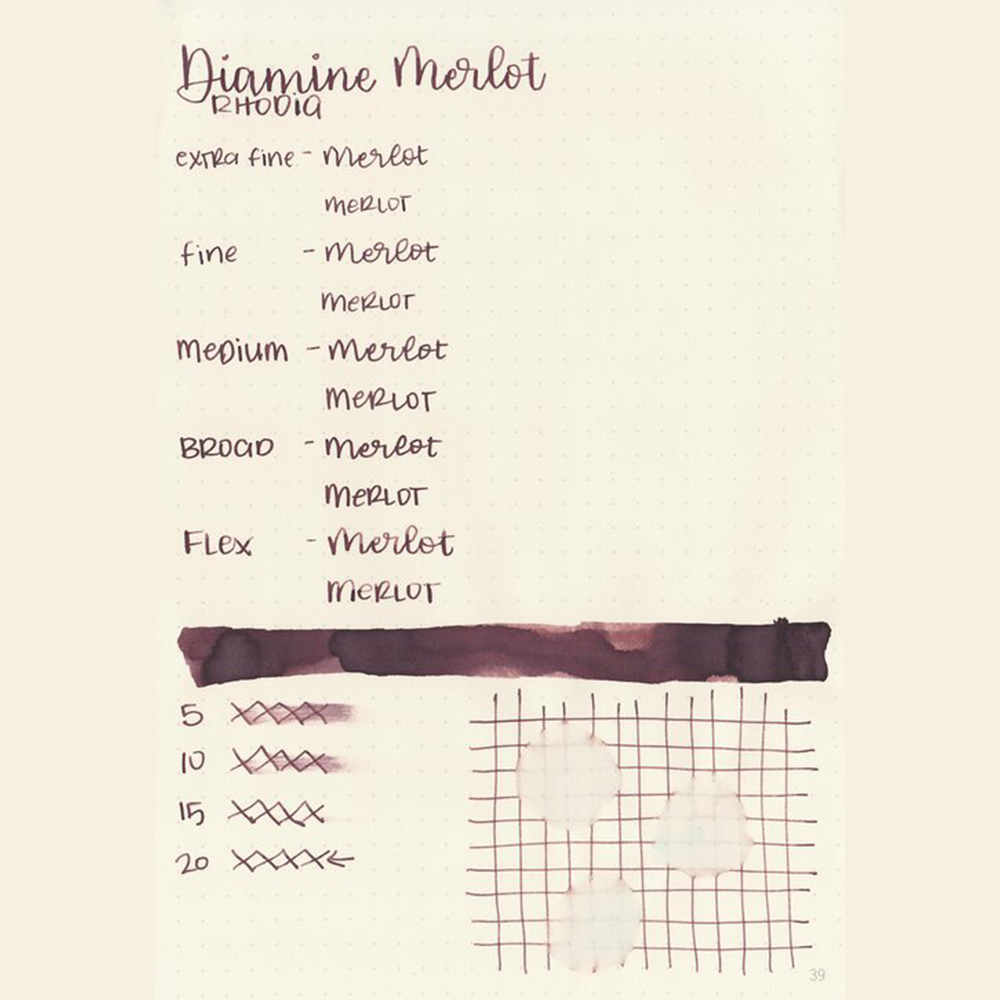 Diamine Merlot
RHODIA
extra fine - Merlot
MERLOT
fine - Merlot
MERLOT
Medium - Merlot
MERLOT
BROAD - Merlot
MERLOT
FLex - Merlot
MERLOT
5 XXXX
10 XXXX
15 XXXX
20 XXXX←
39